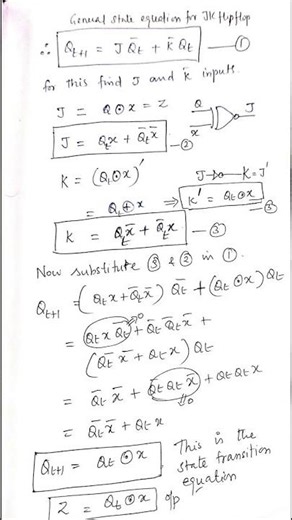 General state equation for JK flipflop
∴ Q_{t+1} = J Q̄_t + K̄ Q_t —①
for this find J and K inputs.
J = Q⊙x = Z
Q
x
J
J = Q_t x + Q̄_t x̄ —②
K = (Q_t⊙x)'
J K = J'
= Q_t⊕x ⇒ K' = Q_t⊙x —③
K = Q_t x̄ + Q̄_t x —③
Now substitute ③ & ② in ①.
Q_{t+1} = (Q_t x + Q̄_t x̄) Q̄_t + (Q_t⊙x) Q_t
= Q_t x Q̄_t + Q̄_t Q̄_t x̄ +
0
(Q̄_t x̄ + Q_t x) Q_t
= Q̄_t x̄ + Q̄_t Q_t x̄ + Q_t Q_t x
0
= Q̄_t x̄ + Q_t x
Q_{t+1} = Q_t ⊙ x
This is the
state transition
equation
Z = Q_t ⊙ x o/p